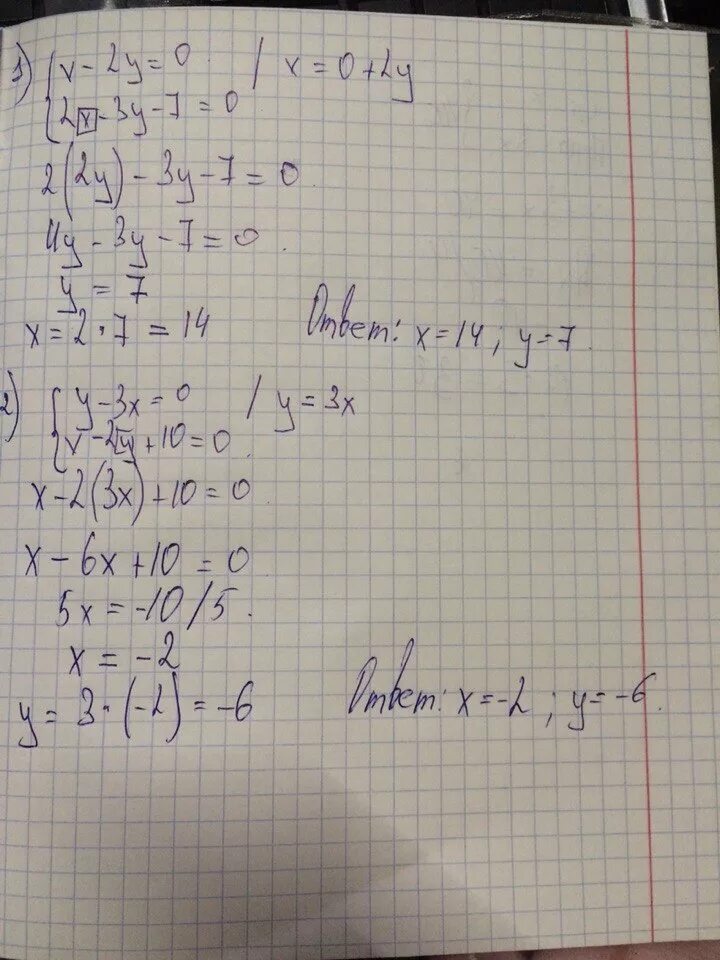 1) { x - 2y = 0 / x = 0 + 2y
2x - 3y - 7 = 0
2(2y) - 3y - 7 = 0
4y - 3y - 7 = 0
y = 7
x = 2 · 7 = 14 Ответ: x = 14; y = 7.
2) { y - 3x = 0 / y = 3x
x - 2y + 10 = 0
x - 2(3x) + 10 = 0
x - 6x + 10 = 0
5x = -10 / 5.
x = -2
y = 3 · (-2) = -6 Ответ: x = -2; y = -6.